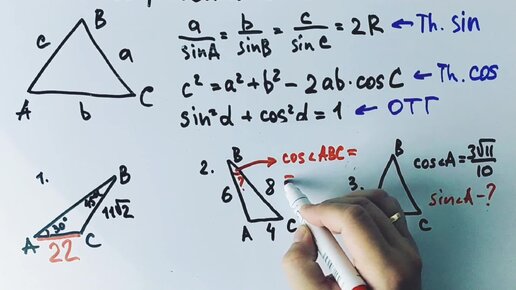 B
c a
A b C
a/sinA = b/sinB = c/sinC = 2R ← Th. sin
c² = a² + b² − 2ab·cosC ← Th. cos
sin²d + cos²d = 1 ← ОТТ
1.
B
45°
11√2
30°
A C
22
2.
B
cos∠ABC =
=
?
6 8
A 4 C
3.
B
cos∠A = 3√11/10
sin∠A - ?
C